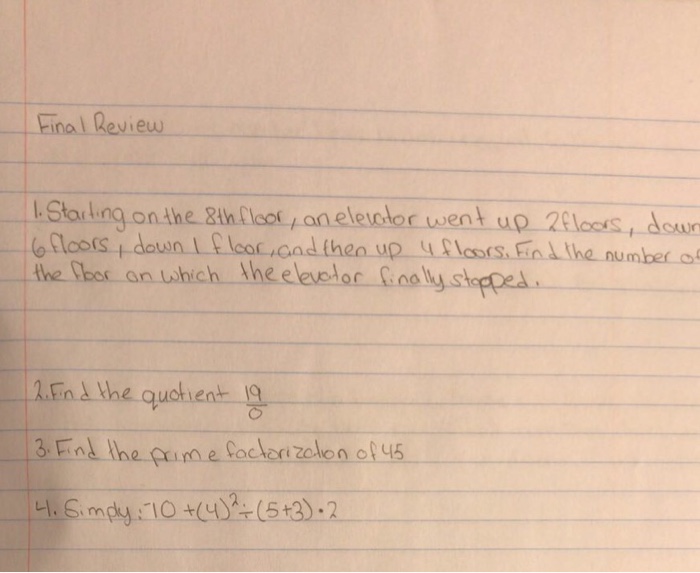 Final Review
1. Starting on the 8th floor, an elevator went up 2 floors, down
6 floors, down 1 floor, and then up 4 floors. Find the number of
the floor on which the elevator finally stopped.
2. Find the quotient 19/0
3. Find the prime factorization of 45
4. Simply: -10 + (4)² ÷ (5+3) · 2